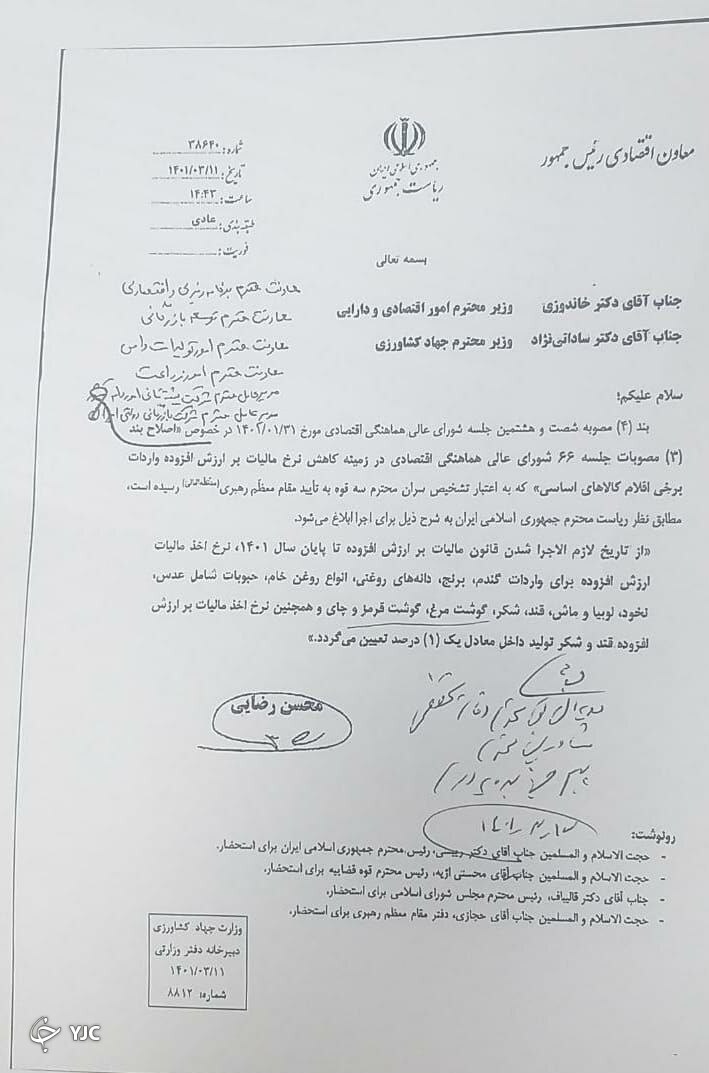 معاون اقتصادی رئیس جمهور
جمهوری اسلامی ایران
ریاست جمهوری
شماره: ۳۸۶۴۰
تاریخ: ۱۴۰۱/۰۳/۱۱
ساعت: ۱۴:۴۳
طبقه بندی: عادی
فوریت:
بسمه تعالی
جناب آقای دکتر خاندوزی وزیر محترم امور اقتصادی و دارایی
جناب آقای دکتر ساداتی‌نژاد وزیر محترم جهاد کشاورزی
معاونت محترم برنامه ریزی و اقتصادی
معاونت محترم توسعه بازرگانی
معاونت محترم امور تولیدات دامی
معاونت محترم امور زراعت
مدیرعامل محترم شرکت پشتیبانی امور دام کشور
مدیر عامل محترم شرکت بازرگانی دولتی ایران
سلام علیکم؛
بند (۴) مصوبه شصت و هشتمین جلسه شورای عالی هماهنگی اقتصادی مورخ ۱۴۰۲/۰۱/۳۱ در خصوص «اصلاح بند
(۳) مصوبات جلسه ۶۶ شورای عالی هماهنگی اقتصادی در زمینه کاهش نرخ مالیات بر ارزش افزوده واردات
برخی اقلام کالاهای اساسی» که به اعتبار تشخیص سران محترم سه قوه به تأیید مقام معظّم رهبری(مدظله‌العالی) رسیده است،
مطابق نظر ریاست محترم جمهوری اسلامی ایران به شرح ذیل برای اجرا ابلاغ می‌شود.
«از تاریخ لازم الاجرا شدن قانون مالیات بر ارزش افزوده تا پایان سال ۱۴۰۱، نرخ اخذ مالیات
ارزش افزوده برای واردات گندم، برنج، دانه‌های روغنی، انواع روغن خام، حبوبات شامل عدس،
نخود، لوبیا و ماش، قند، شکر، گوشت مرغ، گوشت قرمز و چای و همچنین نرخ اخذ مالیات بر ارزش
افزوده قند و شکر تولید داخل معادل یک (۱) درصد تعیین می‌گردد.»
محسن رضایی
رونوشت:
- حجت الاسلام و المسلمین جناب آقای دکتر رییسی، رئیس محترم جمهوری اسلامی ایران برای استحضار.
- حجت الاسلام و المسلمین جناب آقای محسنی اژیه، رئیس محترم قوه قضاییه برای استحضار.
- جناب آقای دکتر قالیباف، رئیس محترم مجلس شورای اسلامی برای استحضار.
- حجت الاسلام و المسلمین جناب آقای حجازی، دفتر مقام معظم رهبری برای استحضار.
وزارت جهاد کشاورزی
دبیرخانه دفتر وزارتی
۱۴۰۱/۰۳/۱۱
شماره: ۸۸۱۲
YJC